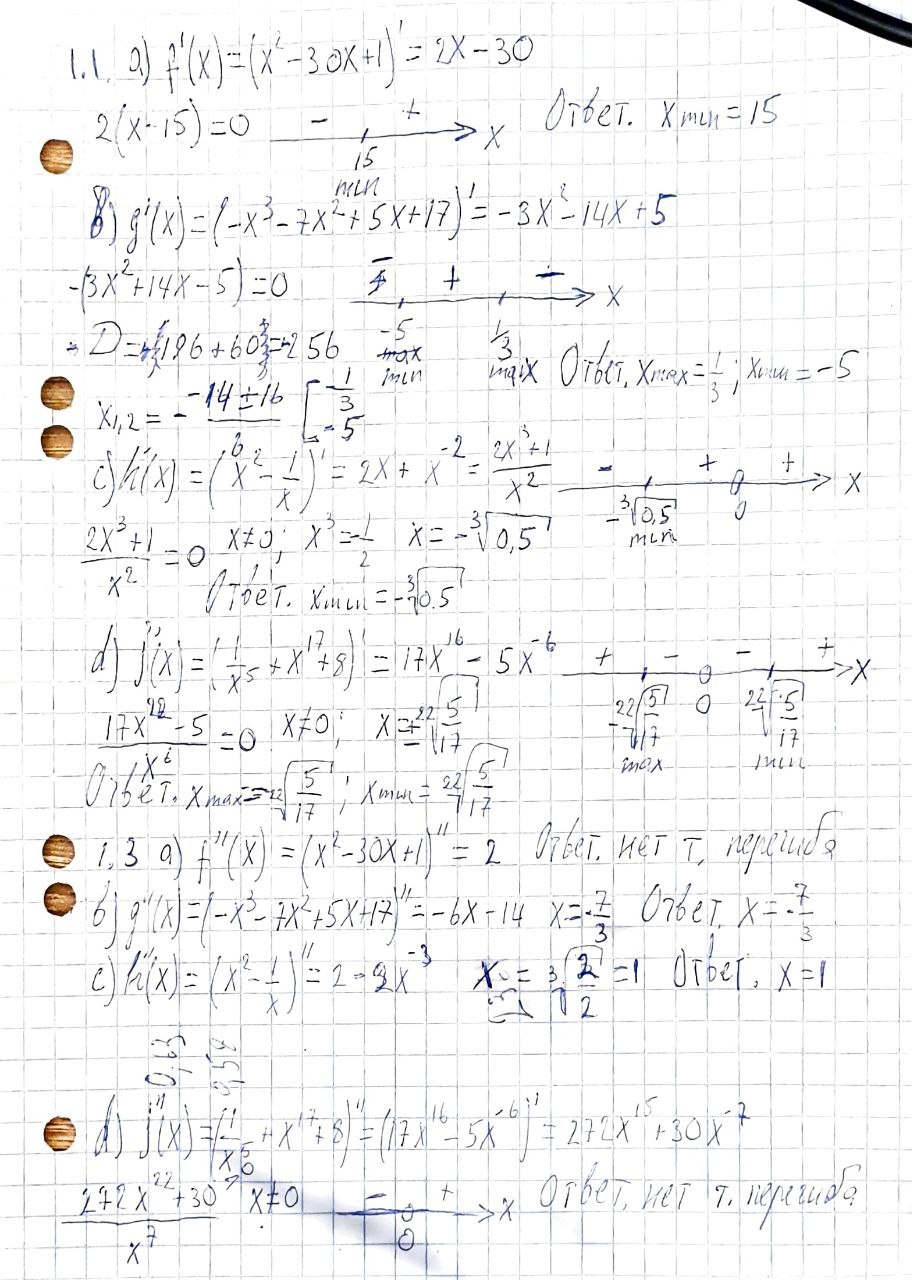 1.1. a) f'(x) = (x² - 30x + 1)' = 2x - 30
2(x - 15) = 0 - + x Ответ. x min = 15
15
min
b) g'(x) = (-x³ - 7x² + 5x + 17)' = -3x² - 14x + 5
-(3x² + 14x - 5) = 0 - + - x
D = 196 + 60 = 256 -5 1/3
min max Ответ. x max = 1/3; x min = -5
x₁,₂ = (-14 ± 16)/6 [ 1/3
-5
c) h'(x) = (x² - 1/x)' = 2x + x⁻² = (2x³ + 1)/x² - + + x
-³√0,5 0
min
(2x³ + 1)/x² = 0 x ≠ 0; x³ = -1/2 x = -³√0,5
Ответ. x min = -³√0.5
d) j'(x) = (1/x⁵ + x¹⁷ + 8)' = 17x¹⁶ - 5x⁻⁶ + - - + x
-²²√(5/17) 0 ²²√(5/17)
max min
(17x²² - 5)/x⁶ = 0 x ≠ 0; x = ±²²√(5/17)
Ответ. x max = -²²√(5/17); x min = ²²√(5/17)
1.3 a) f''(x) = (x² - 30x + 1)'' = 2 Ответ. нет т. перегиба
b) g''(x) = (-x³ - 7x² + 5x + 17)'' = -6x - 14 x = -7/3 Ответ. x = -7/3
c) h''(x) = (x² - 1/x)'' = 2 - 2x⁻³ x = ³√(2/2) = 1 Ответ. x = 1
0,63
0,58
d) j''(x) = (1/x⁵ + x¹⁷ + 8)'' = (17x¹⁶ - 5x⁻⁶)' = 272x¹⁵ + 30x⁻⁷
(272x²² + 30)/x⁷ x ≠ 0 - + x Ответ. нет т. перегиба
0